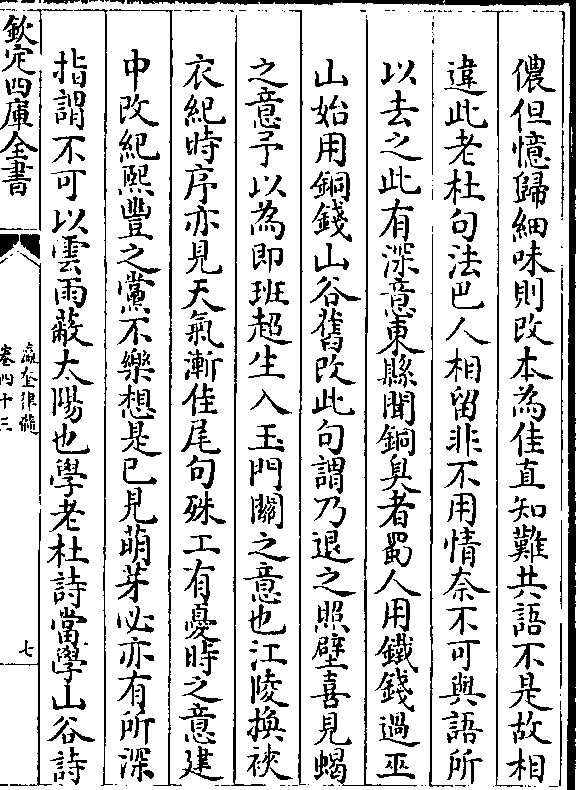 儂但憶歸細味則改本為佳直知難共語不是故相
違此老杜句法巴人相留非不用情奈不可與語所
以去之此有深意東縣聞銅臭者蜀人用鐵錢過巫
山始用銅錢山谷舊改此句謂乃退之照壁喜見蝎
之意予以為即班超生入玉門關之意也江陵換裌
衣紀時序亦見天氣漸佳尾句殊工有憂時之意建
中改紀熙豐之黨不樂想是已見萌芽必亦有所深
指謂不可以雲雨蔽太陽也學老杜詩當學山谷詩
欽定四庫全書
瀛奎律髓
卷四十三
七